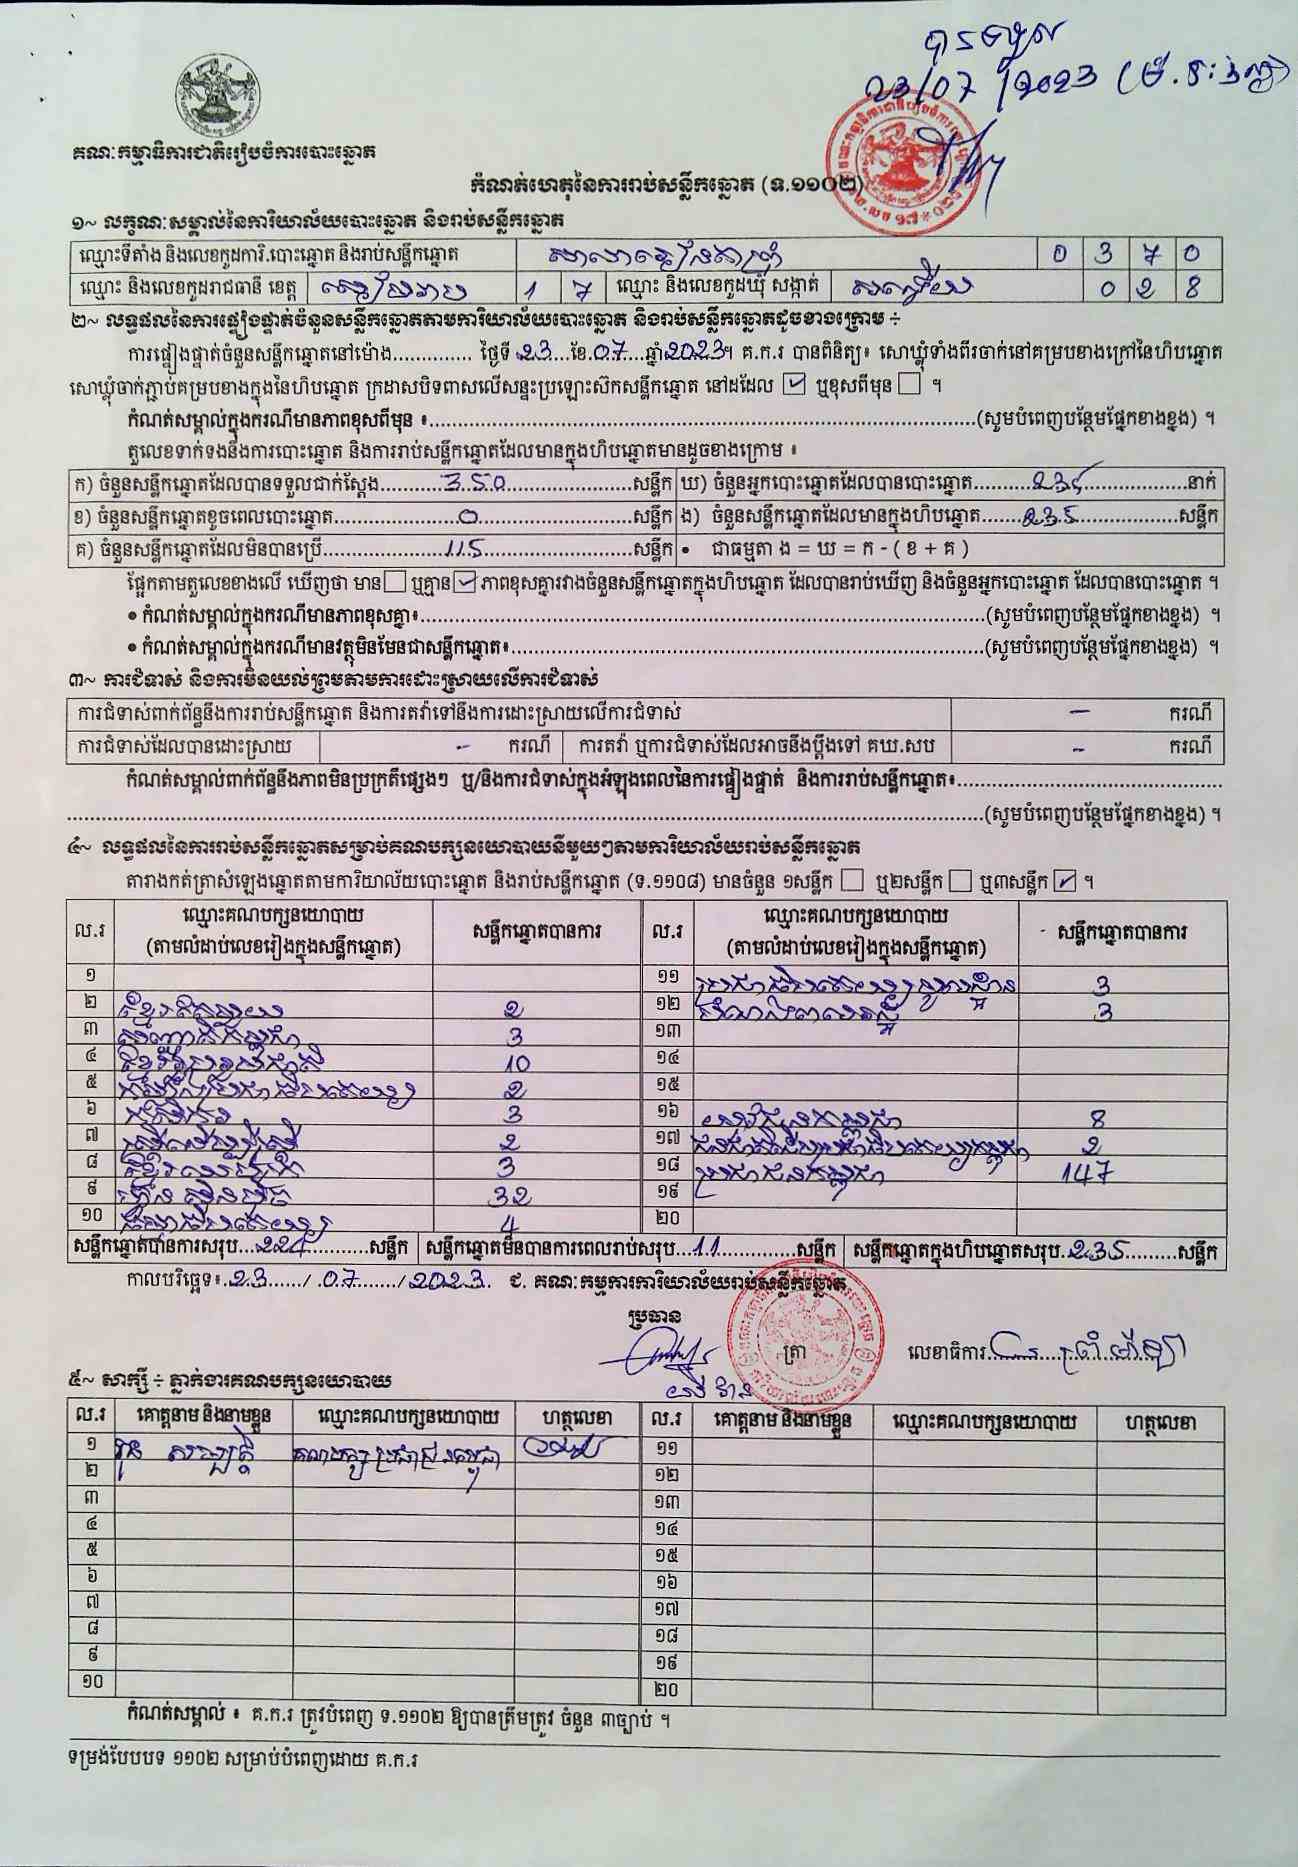 បានទទួល
23/07/2023
គណៈកម្មាធិការជាតិរៀបចំការបោះឆ្នោត
កំណត់ហេតុនៃការរាប់សន្លឹកឆ្នោត (ទ.១១០២)
១~ លក្ខណៈសម្គាល់នៃការិយាល័យបោះឆ្នោត និងរាប់សន្លឹកឆ្នោត
ឈ្មោះទីតាំង និងលេខកូដការិ.បោះឆ្នោត និងរាប់សន្លឹកឆ្នោត 0 3 7 0
ឈ្មោះ និងលេខកូដរាជធានី ខេត្ត សៀមរាប 1 7 ឈ្មោះ និងលេខកូដឃុំ សង្កាត់ 0 2 8
២~ លទ្ធផលនៃការផ្ទៀងផ្ទាត់ចំនួនសន្លឹកឆ្នោតតាមការិយាល័យបោះឆ្នោត និងរាប់សន្លឹកឆ្នោតដូចខាងក្រោម ÷
ការផ្ទៀងផ្ទាត់ចំនួនសន្លឹកឆ្នោតនៅម៉ោង.............. ថ្ងៃទី 23 ...ខែ.07....ឆ្នាំ2023។ គ.ក.រ បានពិនិត្យ៖ សោឃ្លុំទាំងពីរចាក់នៅគម្របខាងក្រៅនៃហិបឆ្នោត
សោឃ្លុំចាក់ភ្ជាប់គម្របខាងក្នុងនៃហិបឆ្នោត ក្រដាសបិទពាសលើសន្ទះប្រឡោះស៊កសន្លឹកឆ្នោត នៅដដែល ☑ ឬខុសពីមុន ☐ ។
កំណត់សម្គាល់ក្នុងករណីមានភាពខុសពីមុន ៖..........(សូមបំពេញបន្ថែមផ្នែកខាងខ្នង) ។
តួលេខទាក់ទងនឹងការបោះឆ្នោត និងការរាប់សន្លឹកឆ្នោតដែលមានក្នុងហិបឆ្នោតមានដូចខាងក្រោម ៖
ក) ចំនួនសន្លឹកឆ្នោតដែលបានទទួលជាក់ស្តែង..........350..........សន្លឹក ឃ) ចំនួនអ្នកបោះឆ្នោតដែលបានបោះឆ្នោត..........235..........នាក់
ខ) ចំនួនសន្លឹកឆ្នោតខូចពេលបោះឆ្នោត..........0..........សន្លឹក ង) ចំនួនសន្លឹកឆ្នោតដែលមានក្នុងហិបឆ្នោត..........235..........សន្លឹក
គ) ចំនួនសន្លឹកឆ្នោតដែលមិនបានប្រើ..........115..........សន្លឹក • ជាធម្មតា ង = ឃ = ក - ( ខ + គ )
ផ្អែកតាមតួលេខខាងលើ ឃើញថា មាន ☐ ឬគ្មាន ☑ ភាពខុសគ្នារវាងចំនួនសន្លឹកឆ្នោតក្នុងហិបឆ្នោត ដែលបានរាប់ឃើញ និងចំនួនអ្នកបោះឆ្នោត ដែលបានបោះឆ្នោត ។
• កំណត់សម្គាល់ក្នុងករណីមានភាពខុសគ្នា៖..........(សូមបំពេញបន្ថែមផ្នែកខាងខ្នង) ។
• កំណត់សម្គាល់ក្នុងករណីមានវត្ថុមិនមែនជាសន្លឹកឆ្នោត៖..........(សូមបំពេញបន្ថែមផ្នែកខាងខ្នង) ។
៣~ ការជំទាស់ និងការមិនយល់ព្រមតាមការដោះស្រាយលើការជំទាស់
ការជំទាស់ពាក់ព័ន្ធនឹងការរាប់សន្លឹកឆ្នោត និងការតវ៉ាទៅនឹងការដោះស្រាយលើការជំទាស់ – ករណី
ការជំទាស់ដែលបានដោះស្រាយ – ករណី ការតវ៉ា ឬការជំទាស់ដែលអាចនឹងប្តឹងទៅ គឃ.សប – ករណី
កំណត់សម្គាល់ពាក់ព័ន្ធនឹងភាពមិនប្រក្រតីផ្សេងៗ ឬ/និងការជំទាស់ក្នុងអំឡុងពេលនៃការផ្ទៀងផ្ទាត់ និងការរាប់សន្លឹកឆ្នោត៖..........
..........(សូមបំពេញបន្ថែមផ្នែកខាងខ្នង) ។
៤~ លទ្ធផលនៃការរាប់សន្លឹកឆ្នោតសម្រាប់គណបក្សនយោបាយនីមួយៗតាមការិយាល័យរាប់សន្លឹកឆ្នោត
តារាងកត់ត្រាសំឡេងឆ្នោតតាមការិយាល័យបោះឆ្នោត និងរាប់សន្លឹកឆ្នោត (ទ.១១០៨) មានចំនួន ១សន្លឹក ☐ ឬ២សន្លឹក ☐ ឬ៣សន្លឹក ☑ ។
ល.រ ឈ្មោះគណបក្សនយោបាយ (តាមលំដាប់លេខរៀងក្នុងសន្លឹកឆ្នោត) សន្លឹកឆ្នោតបានការ ល.រ ឈ្មោះគណបក្សនយោបាយ (តាមលំដាប់លេខរៀងក្នុងសន្លឹកឆ្នោត) សន្លឹកឆ្នោតបានការ
១ ១១ 3
២ 2 ១២ 3
៣ 3 ១៣
៤ 10 ១៤
៥ 2 ១៥
៦ 3 ១៦ យុវជនកម្ពុជា 8
៧ 2 ១៧ 2
៨ 3 ១៨ ប្រជាជនកម្ពុជា 147
៩ ហ្វ៊ុនស៊ិនប៉ិច 32 ១៩
១០ 4 ២០
សន្លឹកឆ្នោតបានការសរុប...224..........សន្លឹក សន្លឹកឆ្នោតមិនបានការពេលរាប់សរុប...11..........សន្លឹក សន្លឹកឆ្នោតក្នុងហិបឆ្នោតសរុប.235.........សន្លឹក
កាលបរិច្ឆេទ៖.23....../.07......./.2023. ជ. គណៈកម្មការការិយាល័យរាប់សន្លឹកឆ្នោត
ប្រធាន
ត្រា លេខាធិការ
៥~ សាក្សី ÷ ភ្នាក់ងារគណបក្សនយោបាយ
ល.រ គោត្តនាម និងនាមខ្លួន ឈ្មោះគណបក្សនយោបាយ ហត្ថលេខា ល.រ គោត្តនាម និងនាមខ្លួន ឈ្មោះគណបក្សនយោបាយ ហត្ថលេខា
១ គណបក្សប្រជាជនកម្ពុជា ១១
២ ១២
៣ ១៣
៤ ១៤
៥ ១៥
៦ ១៦
៧ ១៧
៨ ១៨
៩ ១៩
១០ ២០
កំណត់សម្គាល់ ៖ គ.ក.រ ត្រូវបំពេញ ទ.១១០២ ឱ្យបានត្រឹមត្រូវ ចំនួន ៣ច្បាប់ ។
ទម្រង់បែបបទ ១១០២ សម្រាប់បំពេញដោយ គ.ក.រ